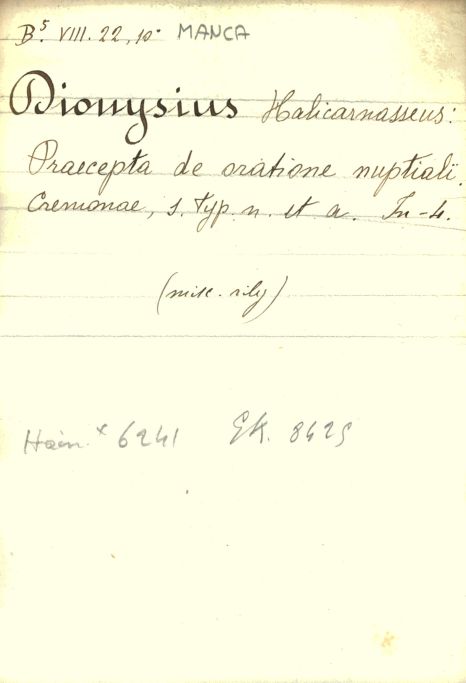 B⁵. VIII. 22, 10. MANCA
Dionysius Halicarnasseus:
Praecepta de oratione nuptiali.
Cremonae, s. typ. n. et a. In-4.
(misc. rily)
Hain.* 6241 GK. 8425